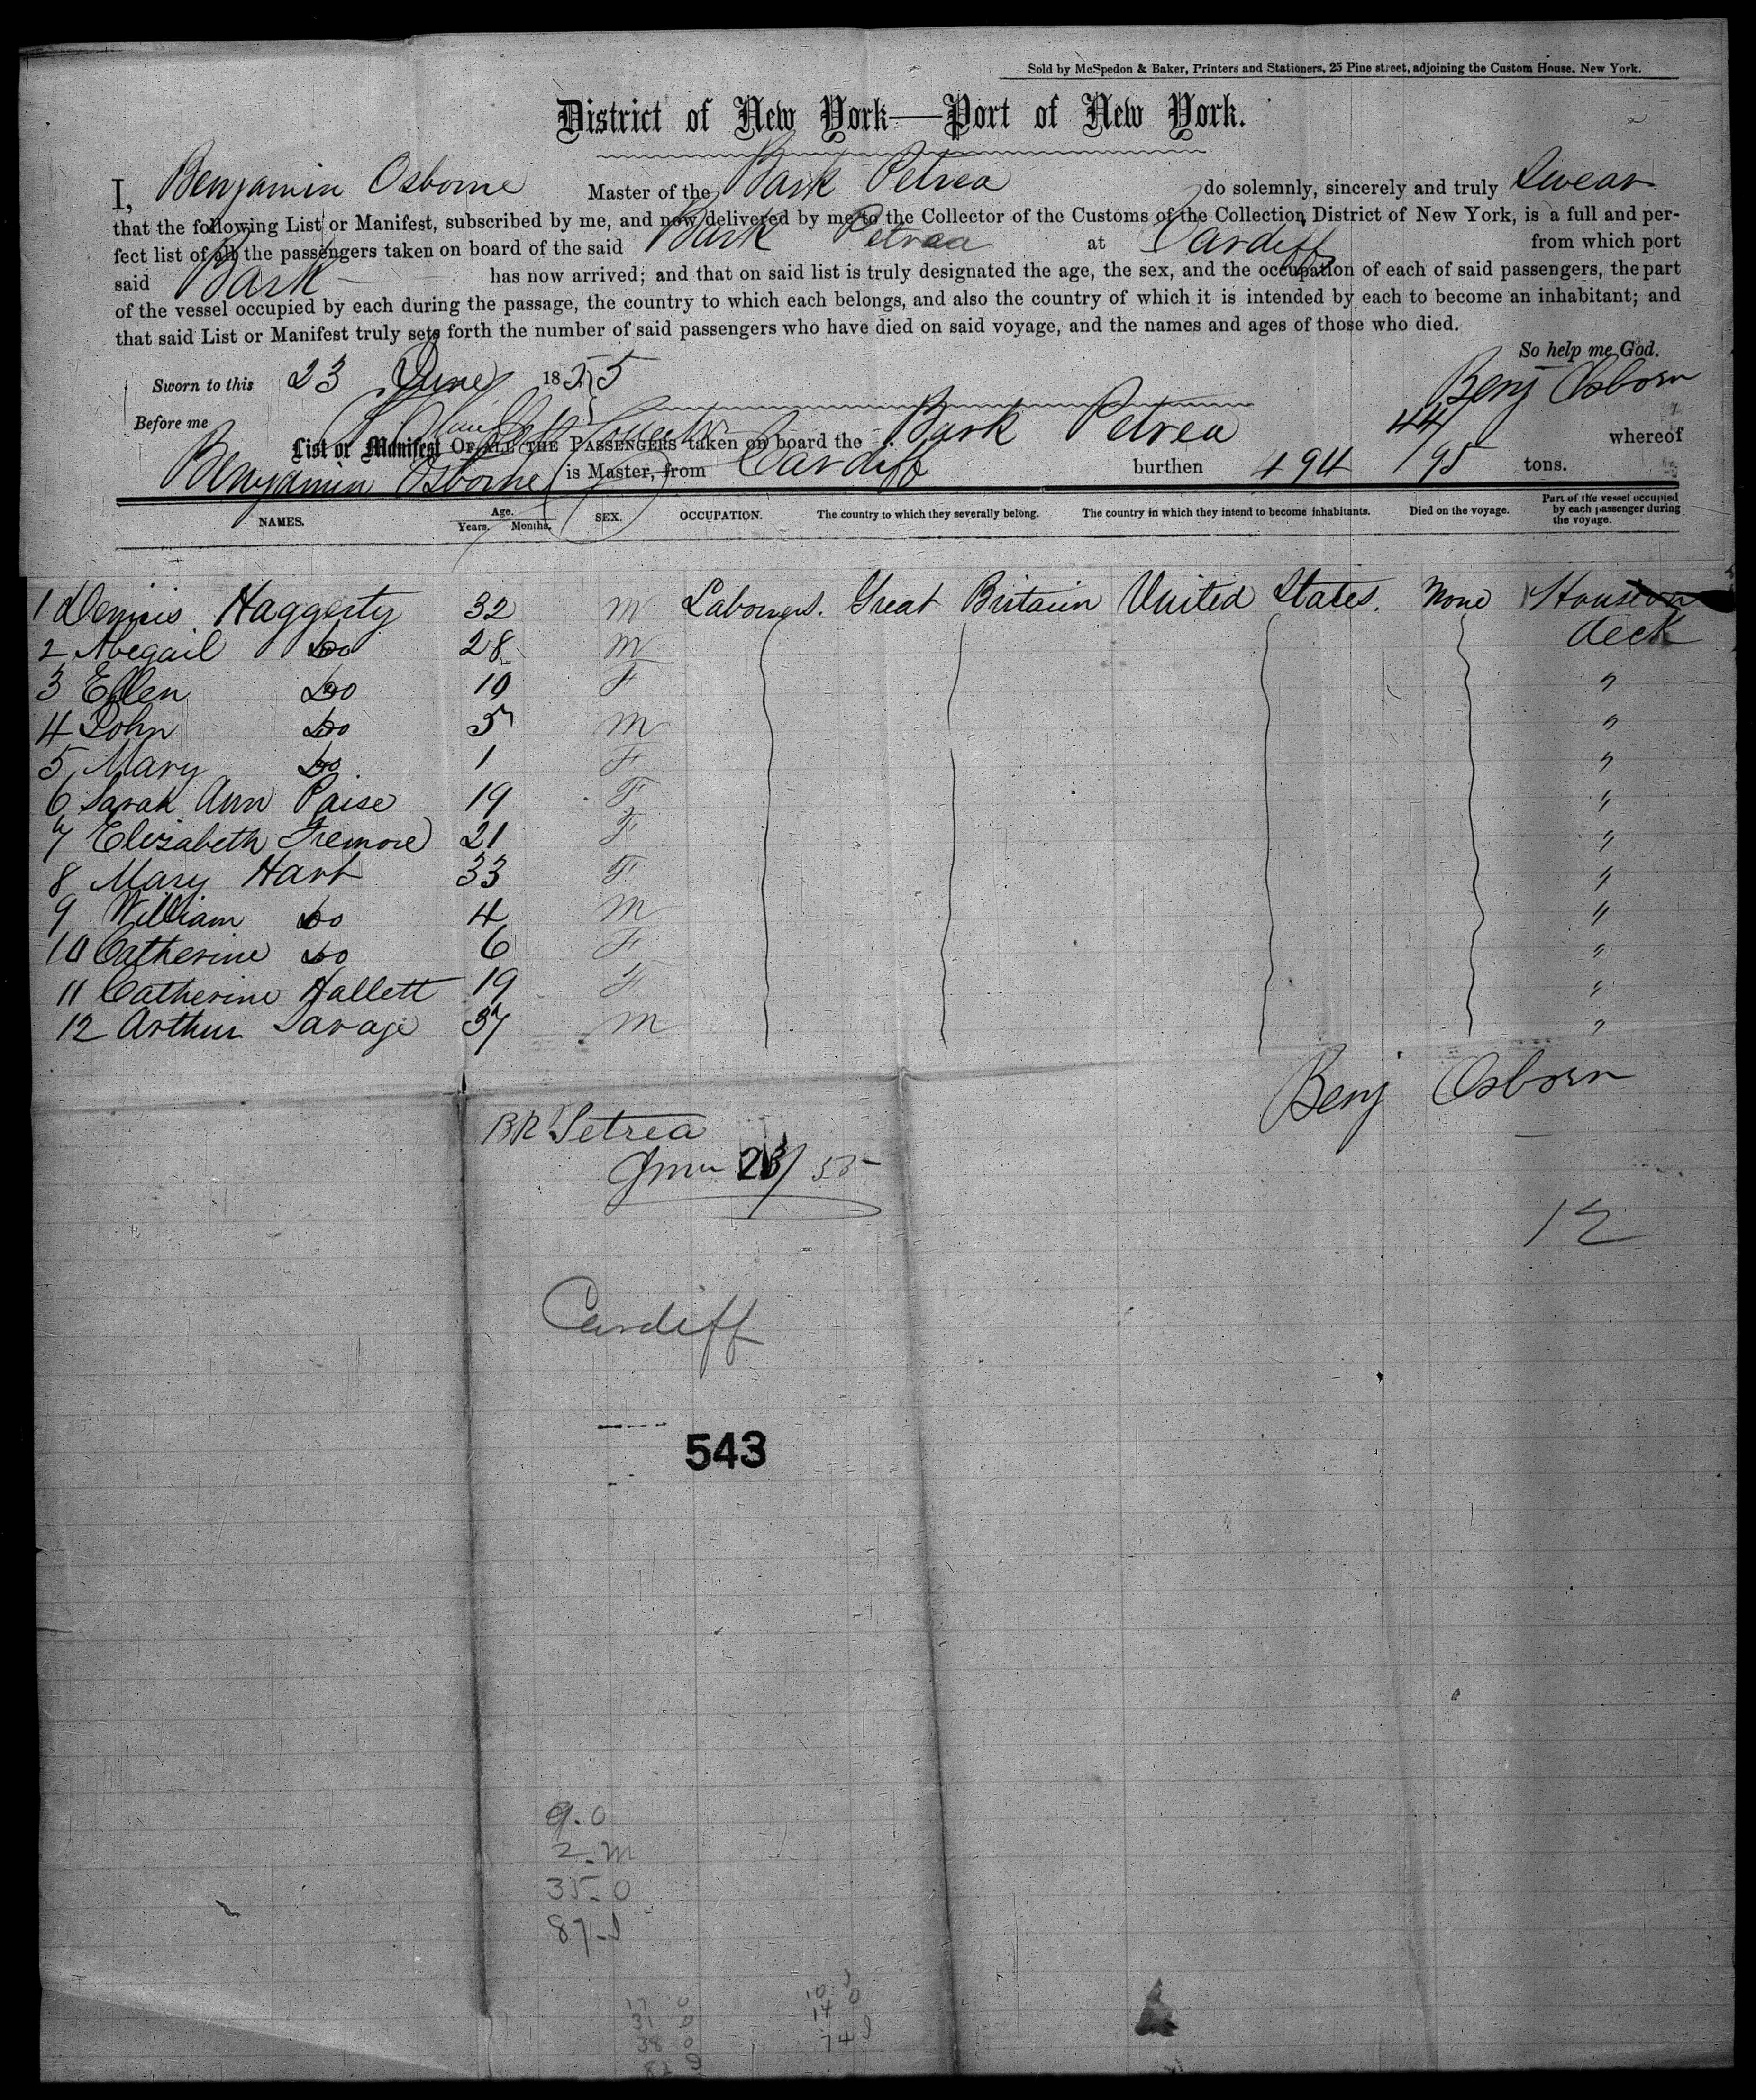 Sold by McSpedon & Baker, Printers and Stationers, 25 Pine street, adjoining the Custom House, New York.
District of New York—Port of New York.
I, Benjamin Osborne Master of the Bark Petrea do solemnly, sincerely and truly Swear
that the following List or Manifest, subscribed by me, and now delivered by me to the Collector of the Customs of the Collection District of New York, is a full and per-
fect list of all the passengers taken on board of the said Bark Petrea at Cardiff from which port
said Bark has now arrived; and that on said list is truly designated the age, the sex, and the occupation of each of said passengers, the part
of the vessel occupied by each during the passage, the country to which each belongs, and also the country of which it is intended by each to become an inhabitant; and
that said List or Manifest truly sets forth the number of said passengers who have died on said voyage, and the names and ages of those who died.
So help me God.
Sworn to this 23 June 1855
Benj Osborn
Before me
List or Manifest OF ALL THE PASSENGERS taken on board the Bark Petrea whereof
Benjamin Osborne is Master, from Cardiff burthen 494 44/95 tons.
NAMES. Age. Years. Months. SEX. OCCUPATION. The country to which they severally belong. The country in which they intend to become inhabitants. Died on the voyage. Part of the vessel occupied by each passenger during the voyage.
1 Dennis Haggerty 32 M Labourers. Great Britain United States. None House on
2 Abegail Do 28 M deck
3 Ellen Do 10 F "
4 John Do 5 M "
5 Mary Do 1 F "
6 Sarah Ann Paise 19 F "
7 Elizabeth Tremore 21 F "
8 Mary Hart 33 F "
9 William Do 4 M "
10 Catherine Do 6 F "
11 Catherine Hallett 19 F "
12 Arthur Savage 37 M "
Benj Osborn
BK Petrea
June 23/55
12
Cardiff
543
9.0
2-m
35-0
87-
17 0
31 0
38 0
82
10
14
74